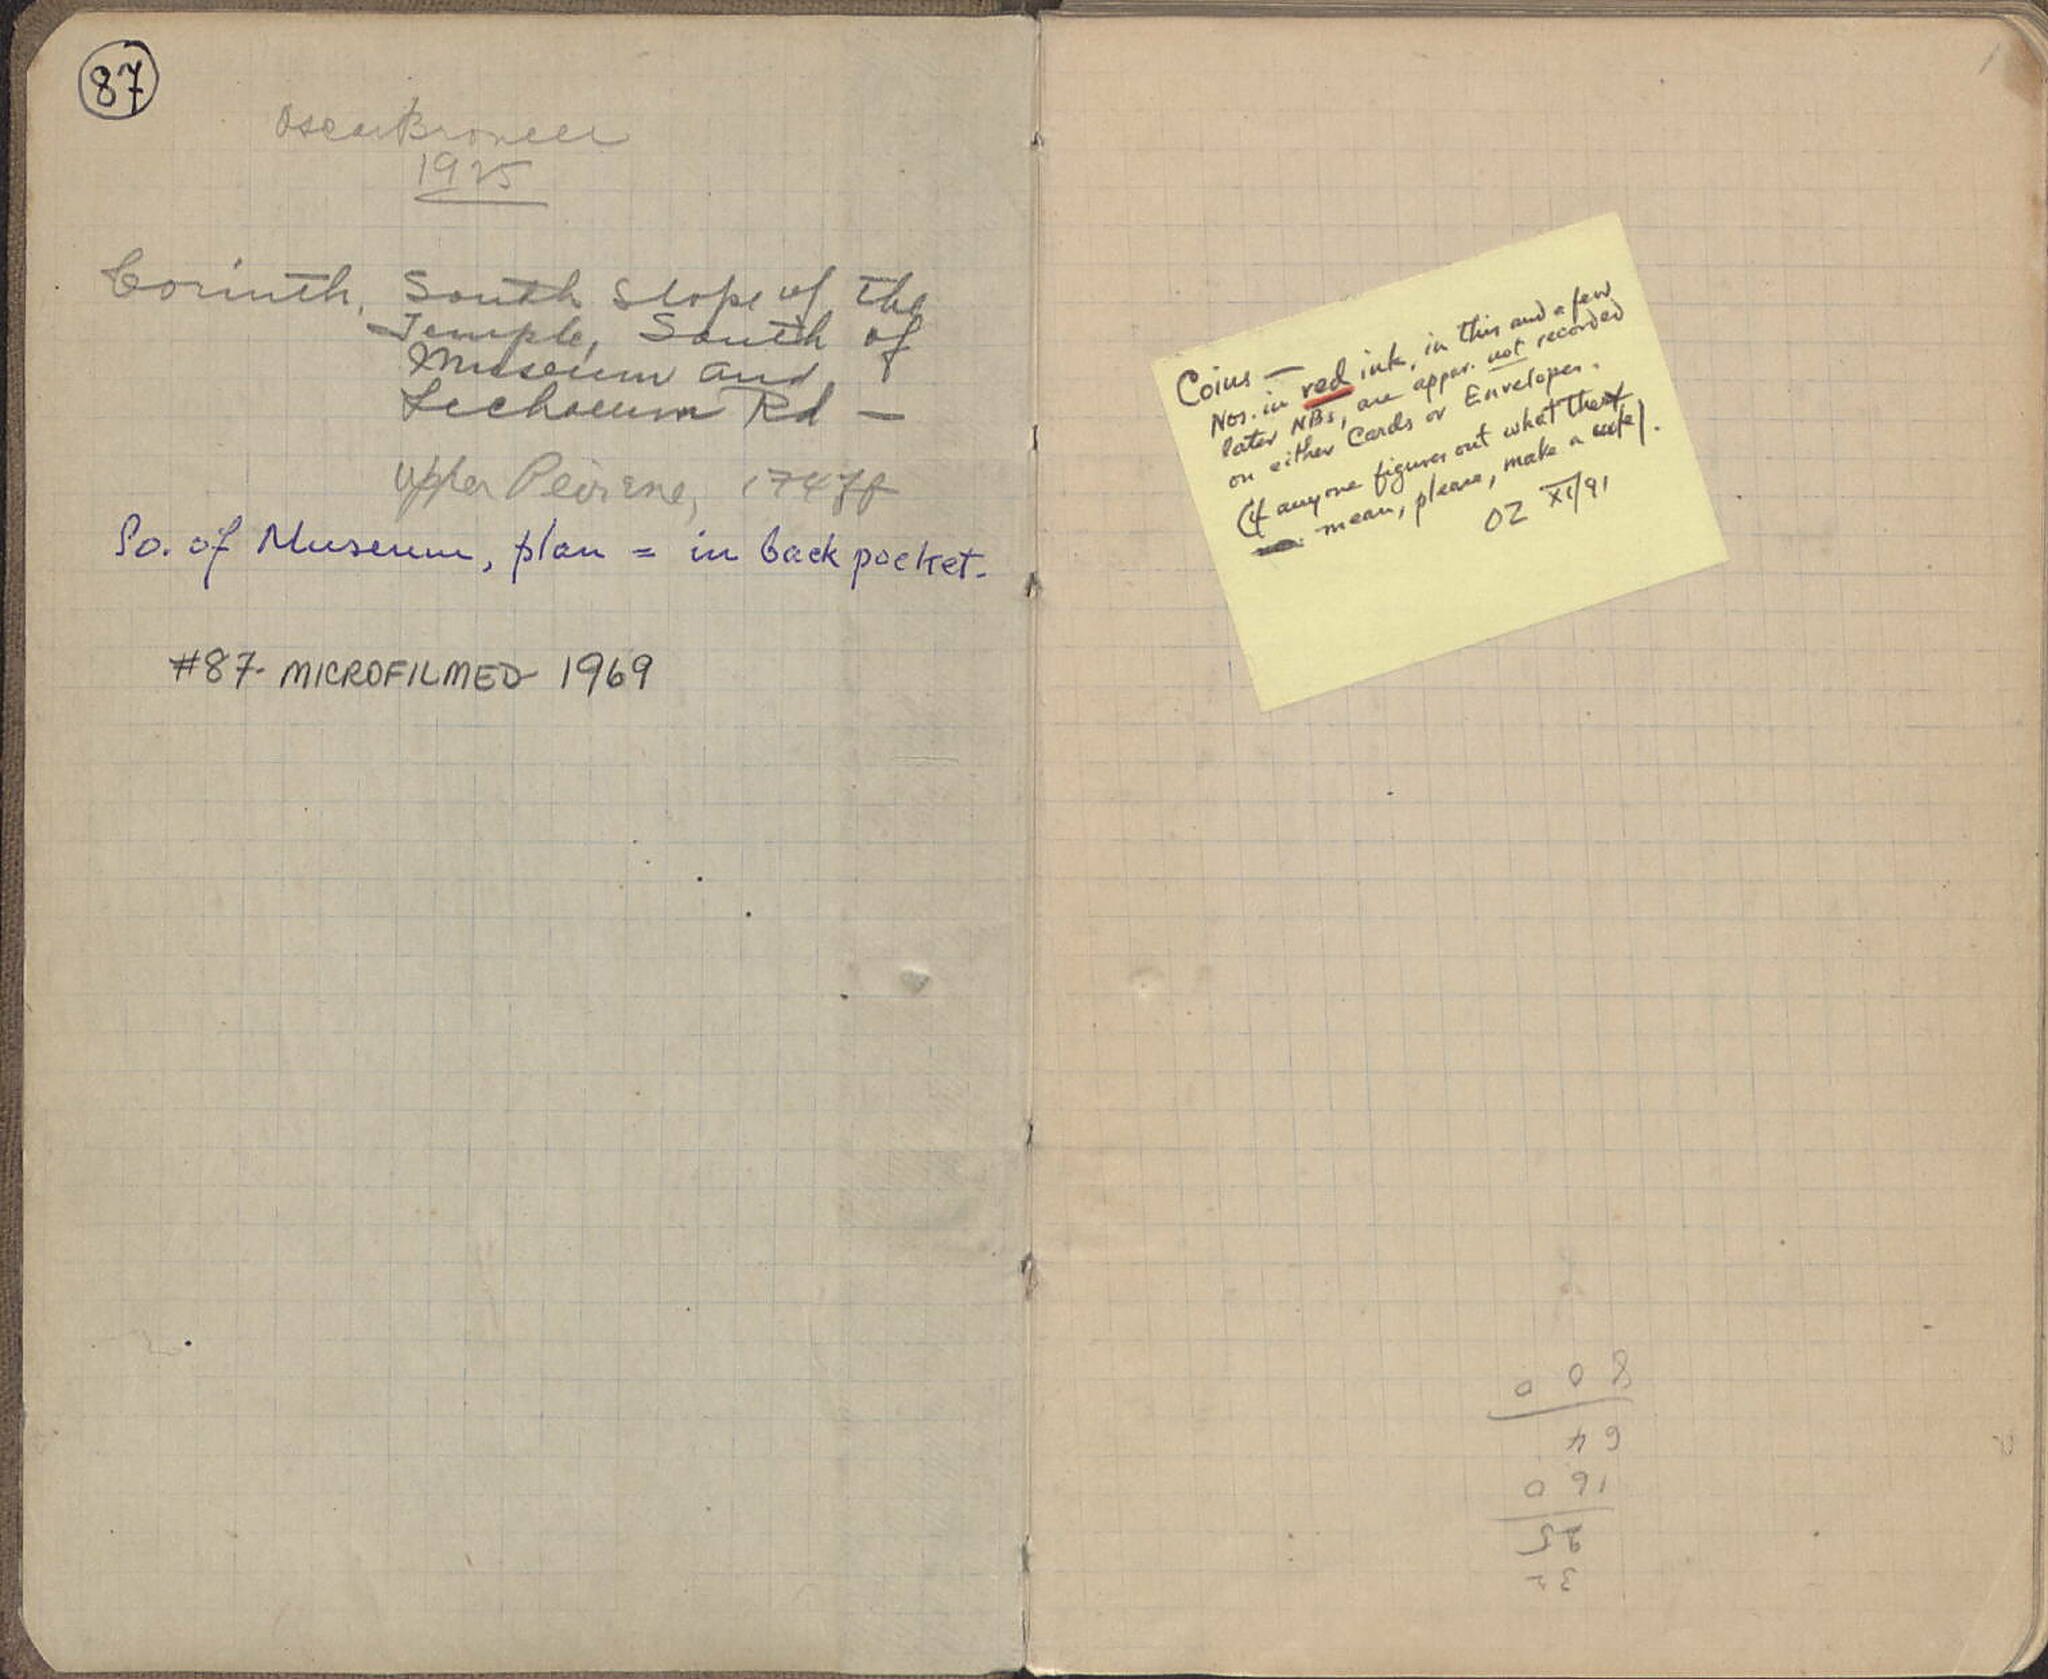 87
Oscar Broneer
1925
Corinth, South Slope of the
Temple, South of
Museum and
Lechaeum Rd —
Upper Peirene, 174ff
So. of Museum, plan = in back pocket.
#87- MICROFILMED 1969
1
Coins —
Nos. in red ink, in this and a few
later NBs, are appar. not recorded
on either Cards or Envelopes.
(If anyone figures out what they
mean, please, make a note).
OZ XI/91
32
25
160
64
800